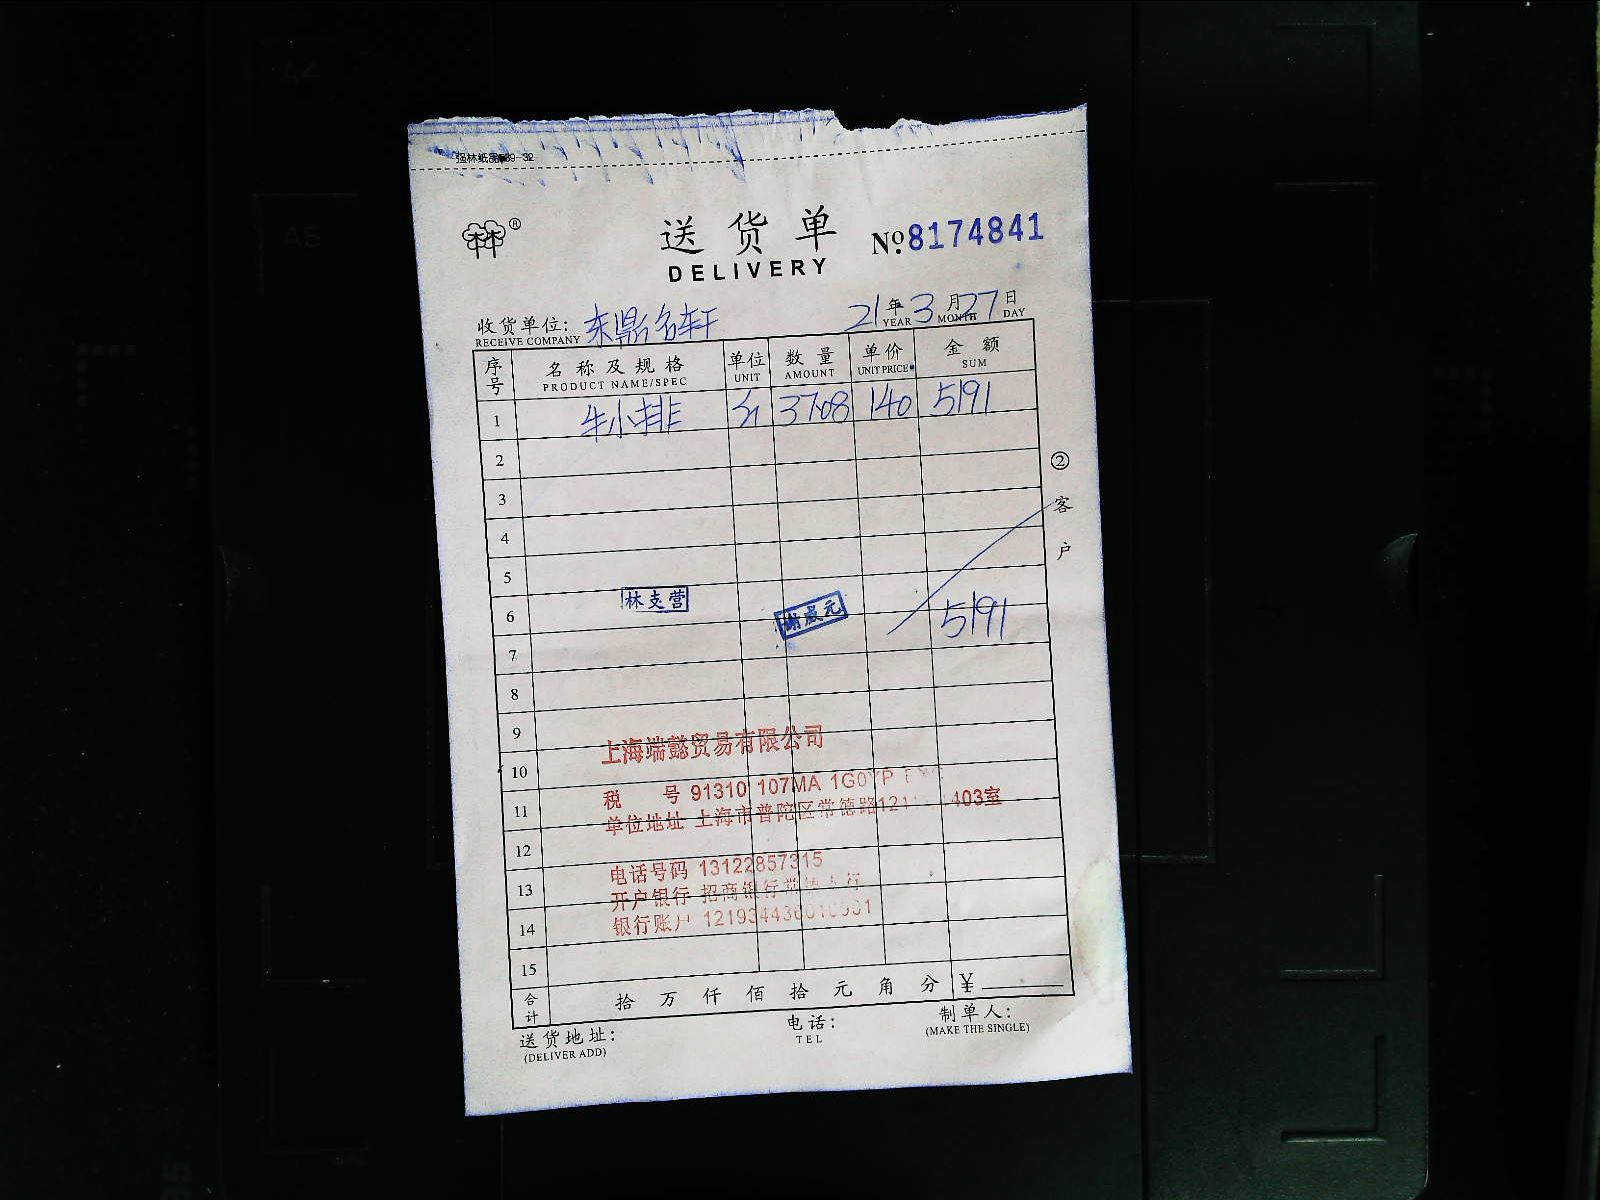 强林纸品589-32
林®
送货单
DELIVERY
No. 8174841
收货单位: 东鼎名轩 21年3月27日
RECEIVE COMPANY YEAR MONTH DAY
序号 名称及规格 单位 数量 单价 金额
PRODUCT NAME/SPEC UNIT AMOUNT UNIT PRICE SUM
1 牛小排 斤 37.08 140 5191
2
3
4
5
6
7
8
9
10
11
12
13
14
15
② 客户
林支营
谢晨元
5191
上海端懿贸易有限公司
税 号 91310 107MA 1G0YP
单位地址 上海市普陀区常德路121 403室
电话号码 13122857315
开户银行 招商银行常德支行
银行账户
合计 拾 万 仟 佰 拾 元 角 分 ¥
送货地址: 电话: 制单人:
(DELIVER ADD) TEL (MAKE THE SINGLE)
A4
A5